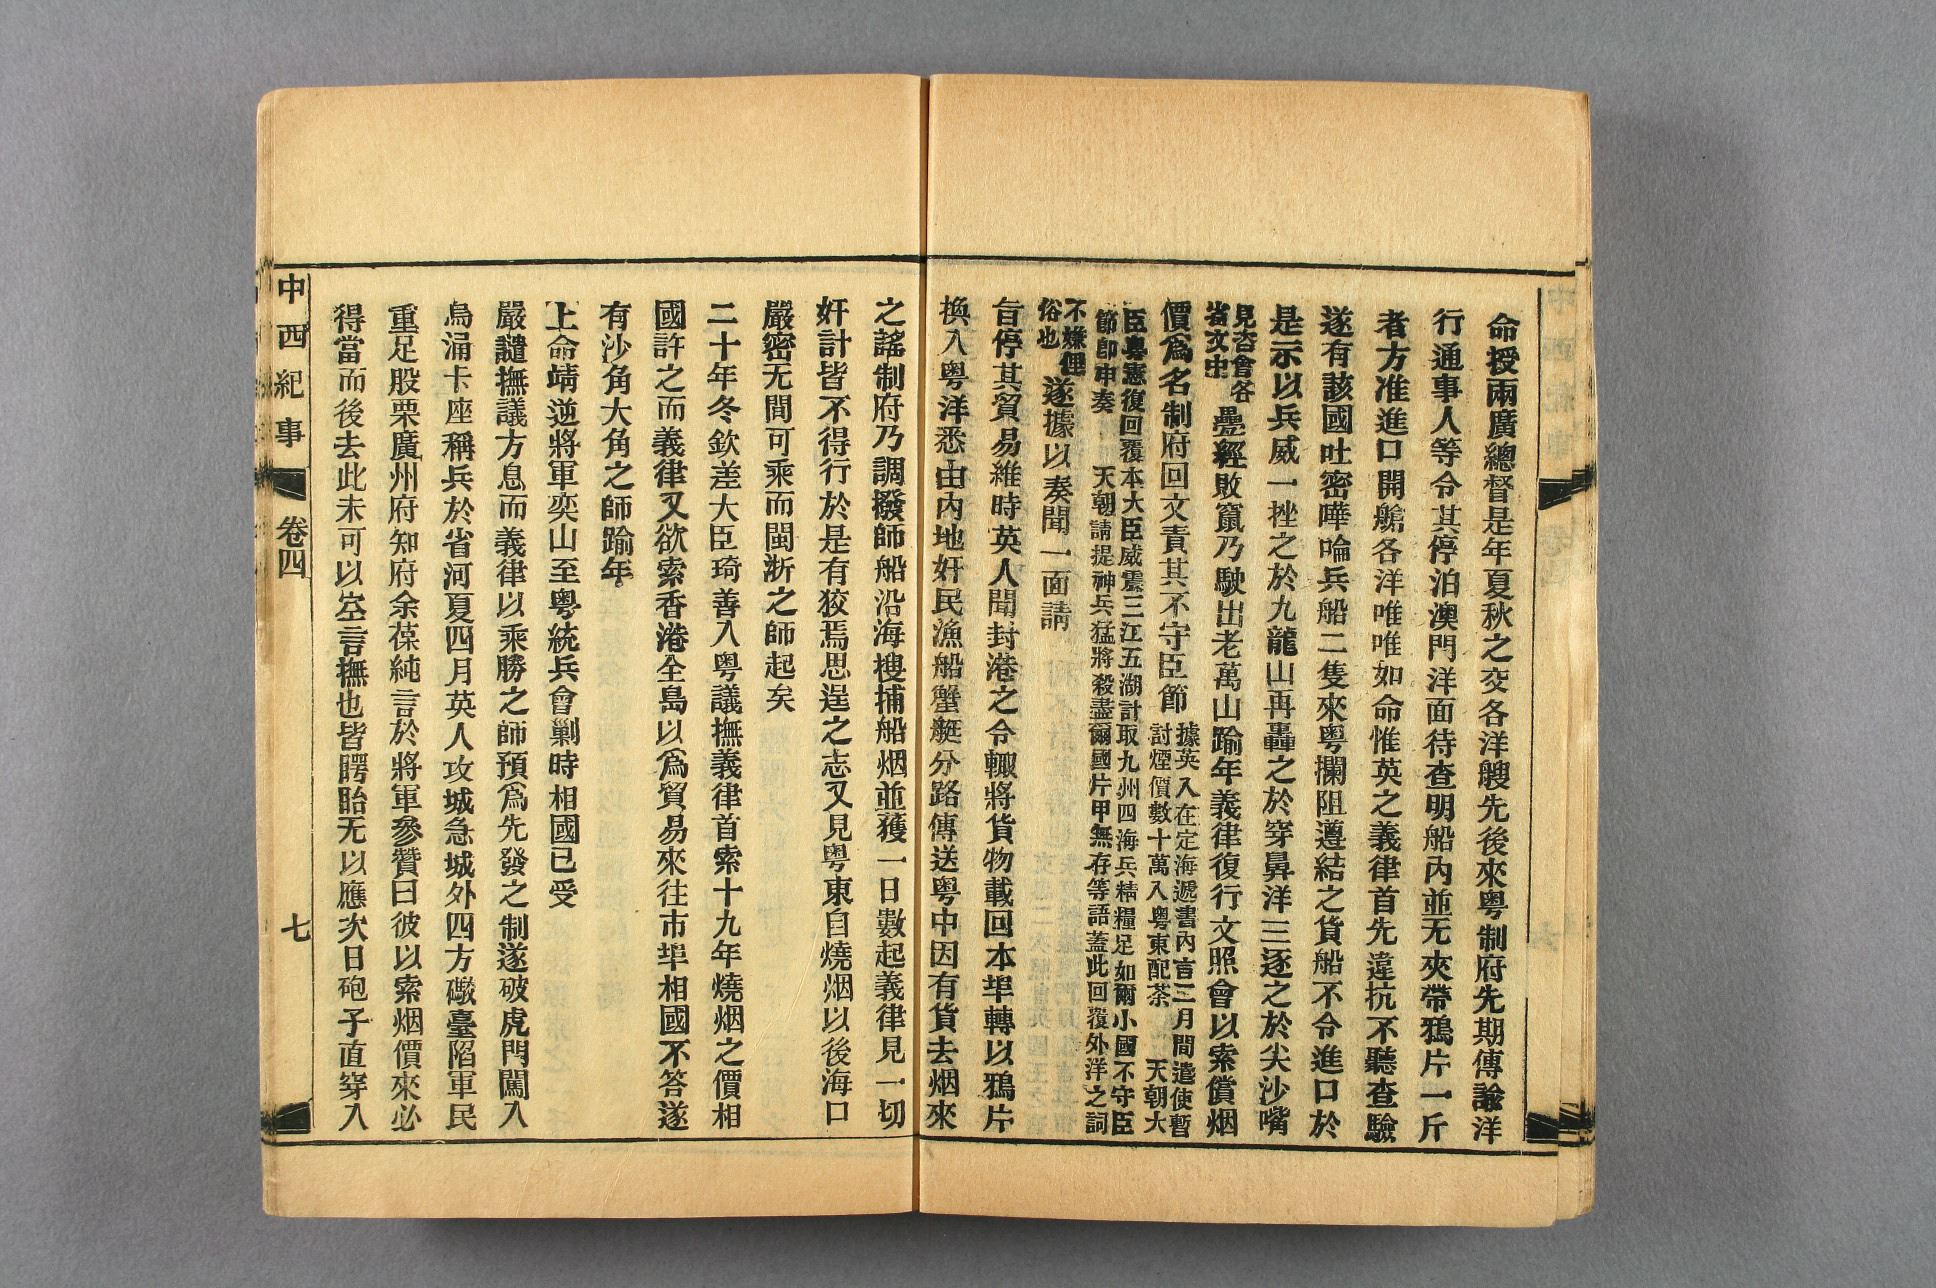 命授兩廣總督是年夏秋之交各洋艘先後來粵制府先期傳諭洋
行通事人等令其停泊澳門洋面待查明船內並无夾帶鴉片一斤
者方准進口開艙各洋唯唯如命惟英之義律首先違抗不聽查驗
遂有該國吐密嘩喻兵船二隻來粵攔阻遵結之貨船不令進口於
是示以兵威一挫之於九龍山再轟之於穿鼻洋三逐之於尖沙嘴
見咨會各
省文中
疊經敗竄乃駛出老萬山踰年義律復行文照會以索償烟
價爲名制府回文責其不守臣節
據英人在定海遞書內言三月間遣使暫
討煙價數十萬入粵東配茶 天朝大
臣粵憲復回覆本大臣威震三江五湖計取九州四海兵精糧足如爾小國不守臣
節卽申奏 天朝請提神兵猛將殺盡爾國片甲無存等語蓋此回覆外洋之詞
不嫌俚
俗也
遂據以奏聞一面請
旨停其貿易維時英人聞封港之令輒將貨物載回本埠轉以鴉片
換入粵洋悉由內地奸民漁船蟹艇分路傳送粵中因有貨去烟來
之謠制府乃調撥師船沿海搜捕船烟並獲一日數起義律見一切
奸計皆不得行於是有狡焉思逞之志又見粵東自燒烟以後海口
嚴密无間可乘而閩浙之師起矣
二十年冬欽差大臣琦善入粵議撫義律首索十九年燒烟之價相
國許之而義律又欲索香港全島以爲貿易來往市埠相國不答遂
有沙角大角之師踰年
上命靖逆將軍奕山至粵統兵會剿時相國已受
嚴譴撫議方息而義律以乘勝之師預爲先發之制遂破虎門闖入
烏涌卡座稱兵於省河夏四月英人攻城急城外四方礮臺陷軍民
重足股栗廣州府知府余葆純言於將軍參贊曰彼以索烟價來必
得當而後去此未可以空言撫也皆腭眙无以應次日砲子直穿入
中西紀事 卷四 七